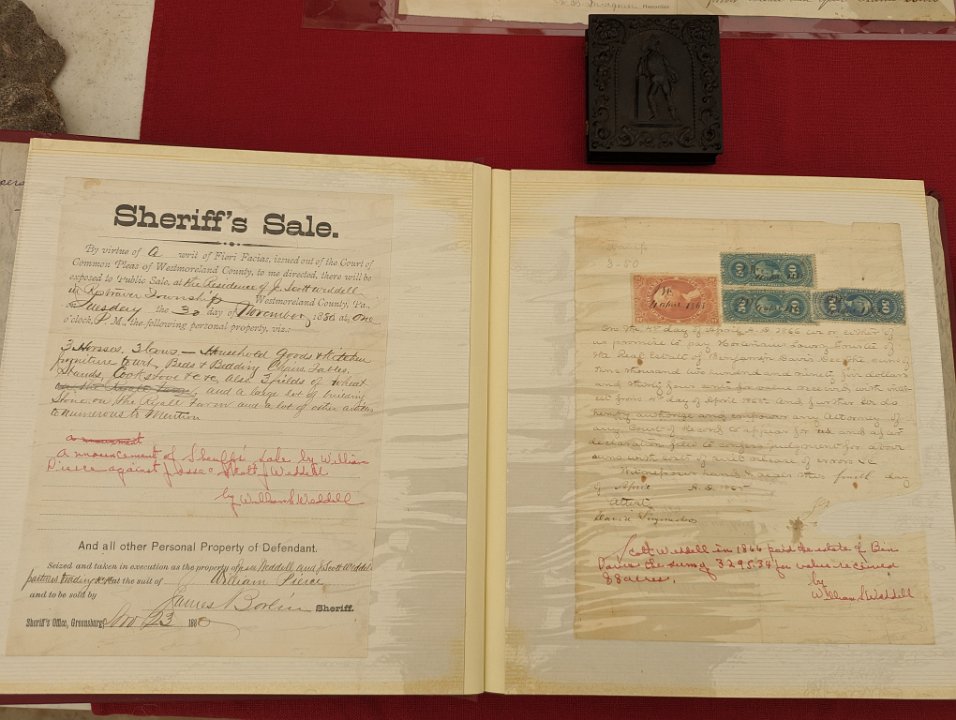 Recorder
Sheriff's Sale.
By virtue of a writ of Fieri Facias, issued out of the Court of
Common Pleas of Westmoreland County, to me directed, there will be
exposed to Public Sale, at the Residence of J. Scott Weddell
in Rostraver Township Westmoreland County, Pa.,
on Tuesday the 30 day of November 1880 at one
o'clock, P. M., the following personal property, viz:
3 Horses, 3 Cows, — Household Goods & Kitchen
furniture Beds & Bedding Tables,
Stands, Cook stove Also 3 fields of wheat
and a large lot of building
Stone on the Farm and a lot of other articles
to numerous to Mention
announcement of Sheriff's Sale by William
Pierce against Jesse & Scott Weddell
by William S Weddell
And all other Personal Property of Defendant.
Seized and taken in execution as the property of Jesse Weddell and J Scott Weddell
partners trading at the suit of William Pierce
and to be sold by
James Borlin Sheriff.
Sheriff's Office, Greensburg Nov 23 1880
3-50
On the day of April A.D. 1866 we or either of
us promise to pay
the Real Estate of Benjamin Davis
two hundred and ninty five dollars
and thirty four cents for value received with
from day of April And further we do
hereby authorize and empower any Attorney of
any Court of Record to appear for us and after
declaration filed to confess judgment for above
sum with cost of suit release of errors &c
Witness our hands this fourth day
of April A.D. 1865
Attest
David
Scott Weddell in 1866 paid the estate of Ben
Davis the sum of 3295.34 for value received
88 acres.
by
William S Weddell